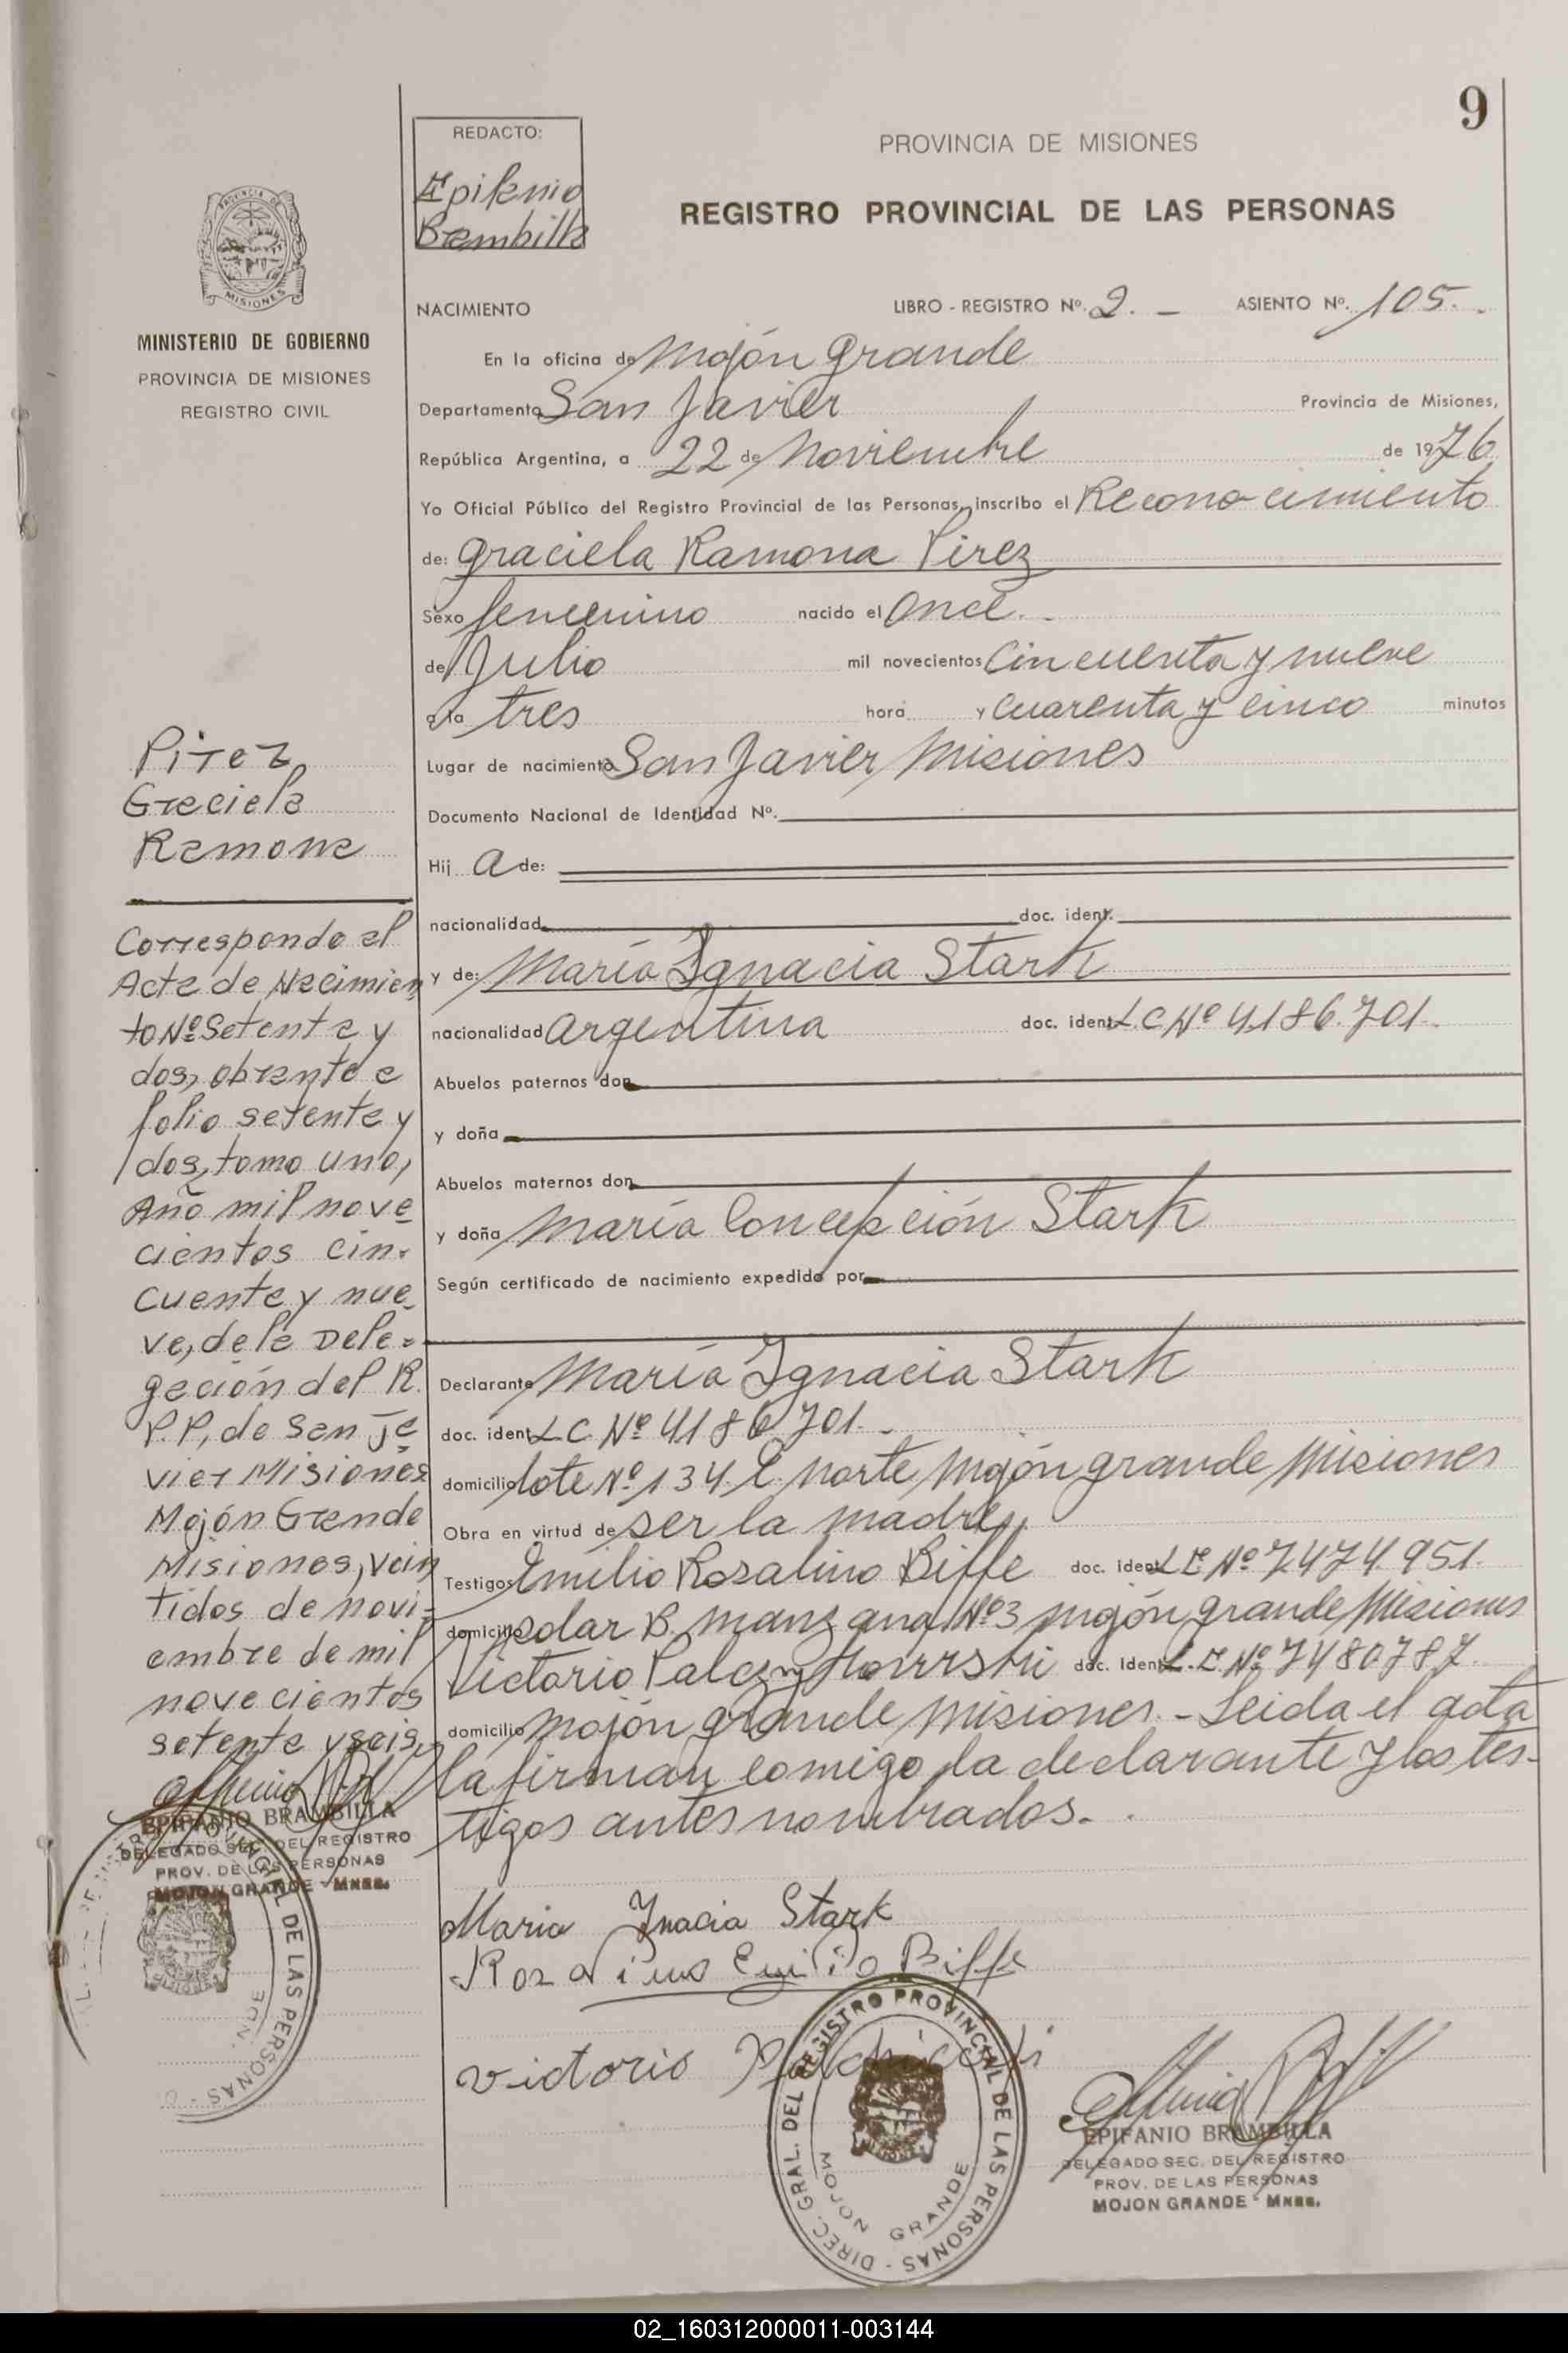 9
REDACTO:
Epifanio
Brambilla
PROVINCIA DE MISIONES
REGISTRO PROVINCIAL DE LAS PERSONAS
PROVINCIA DE
MISIONES
MINISTERIO DE GOBIERNO
PROVINCIA DE MISIONES
REGISTRO CIVIL
NACIMIENTO LIBRO - REGISTRO Nº. 2. - ASIENTO Nº. 105.-
En la oficina de Mojón grande
Departamento San Javier Provincia de Misiones,
República Argentina, a 22 de Noviembre de 1976
Yo Oficial Público del Registro Provincial de las Personas, inscribo el Reconocimiento
de: Graciela Ramona Pirez
Sexo femenino nacido el once.-
de Julio mil novecientos Cincuenta y nueve
a la tres hora y cuarenta y cinco minutos
Lugar de nacimiento San Javier, Misiones
Documento Nacional de Identidad Nº.
Hij a de:
nacionalidad doc. ident.
y de: María Ignacia Stark
nacionalidad Argentina doc. ident. L.C Nº 4.186.701.-
Abuelos paternos don
y doña
Abuelos maternos don
y doña María Concepción Stark
Según certificado de nacimiento expedido por
Declarante María Ignacia Stark
doc. ident. L C Nº 4186701.-
domicilio lote Nº 134. L. norte Mojón grande Misiones
Obra en virtud de ser la madre,
Testigos Emilio Rosalino Biffe doc. ident. L E Nº 7474.951.
domicilio solar B. manzana Nº 3 Mojón grande Misiones
Victorio doc. Ident. L. E. Nº 7480787.
domicilio Mojón grande Misiones.- Leida el acta
la firman comigo la declarante y los tes-
tigos antes nombrados.-
Maria Ynacia Stark
Rosalino Emilio Biffe
victorio
DIREC. GRAL. DEL REGISTRO PROVINCIAL DE LAS PERSONAS -
MOJON GRANDE
EPIFANIO BRAMBILLA
DELEGADO SEC. DEL REGISTRO
PROV. DE LAS PERSONAS
MOJON GRANDE - Mnes.
Pirez
Graciela
Ramona
Corresponde al
Acta de Nacimien
to Nº Setenta y
dos, obrante a
folio setenta y
dos, tomo uno,
Año mil nove
cientos cin-
cuenta y nue-
ve, de la Dele-
gación del R.
P.P, de San Ja
vier Misiones
Mojón Grande
Misiones, vein
tidos de novi-
embre de mil
novecientos
setenta y seis
EPIFANIO BRAMBILLA
DELEGADO SEC. DEL REGISTRO
PROV. DE LAS PERSONAS
MOJON GRANDE - Mnes.
02_160312000011-003144